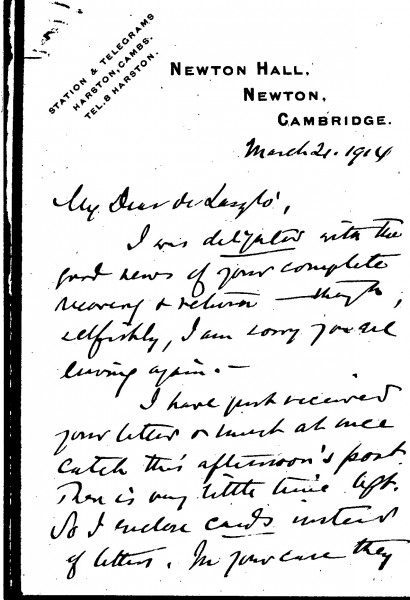 STATION & TELEGRAMS
HARSTON, CAMBS.
TEL. 8 HARSTON.
NEWTON HALL,
NEWTON,
CAMBRIDGE.
March 21. 1914
My Dear de László,
I was delighted with the
good news of your complete
recovery & return – though,
selfishly, I am sorry you are
leaving again. –
I have just received
your letter & must at once
catch this afternoon's post.
There is very little time left.
So I enclose cards instead
of letters. In your case they